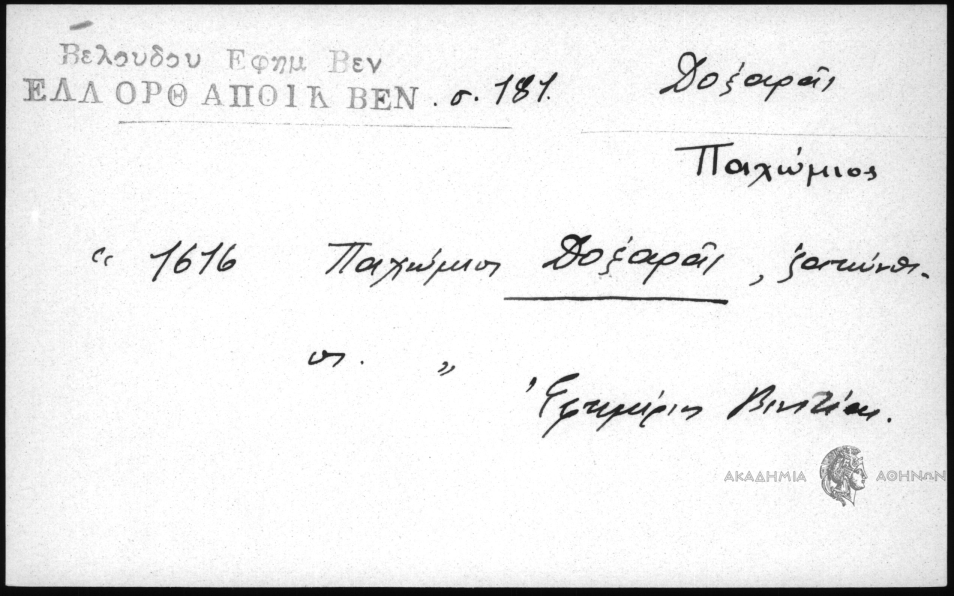 Βελουδου Εφημ Βεν
ΕΛΛ ΟΡΘ ΑΠΟΙΚ ΒΕΝ . σ. 181.
Δοξαρᾶς
Παχώμιος
“ 1616 Παχώμιος Δοξαρᾶς, ζακύνθι-
ος. „
Ἐφημέριος Βενετίας.
ΑΚΑΔΗΜΙΑ ΑΘΗΝΩΝ